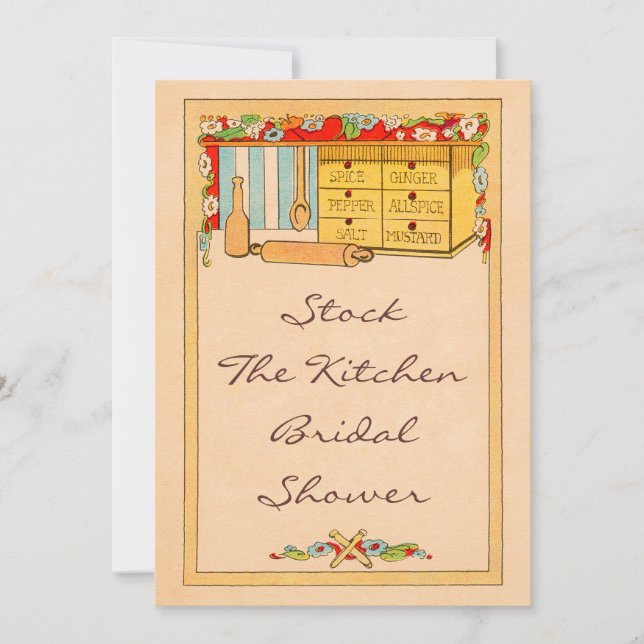 SPICE GINGER
PEPPER ALLSPICE
SALT MUSTARD
Stock
The Kitchen
Bridal
Shower